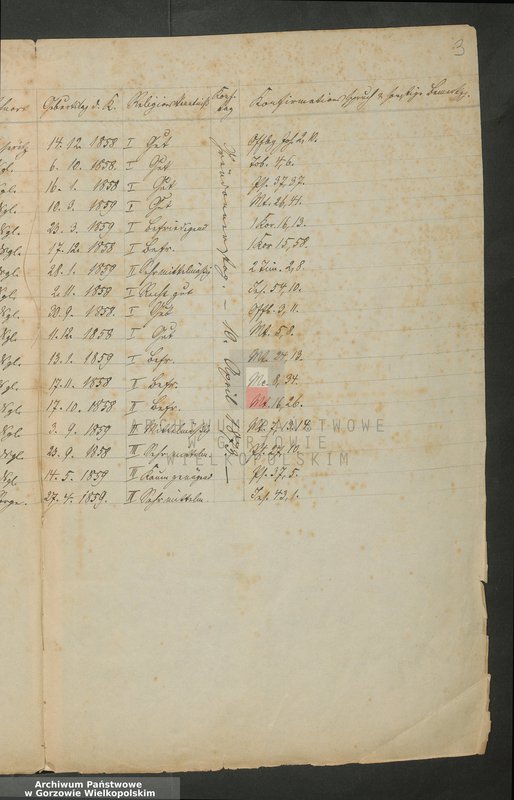 3
Geburtstag d. K. Religionskenntniß Konf. tag Konfirmationsspruch & sonstige Bemerkg.
14. 12. 1858 I Gut Offbg Joh 2, 10.
6. 10. 1858. I Gut Tob. 4, 6.
16. 1. 1858 I Gut Ps. 37, 37.
10. 3. 1859 I Gut Mt. 26, 41.
23. 3. 1859 I Befriedigend 1 Kor. 16, 13.
17. 12. 1858 I Befr. 1 Kor 15, 58.
28. 1. 1859 II Sehr mittelmäßig 2 Tim. 2, 8.
2. 11. 1858 I Recht gut Jes. 54. 10.
20. 9. 1858. I Gut Offb. 3, 11.
11. 12. 1858 I Gut Mt. 5, 8.
13. 1. 1859 I Befr. Mt. 24, 13.
17. 11. 1858 I Befr. Mc. 8, 34.
17. 10. 1858 II Befr. Mt. 16, 26.
3. 9. 1859 II Mittelmäßig Mt. 7, 13. 14
23. 9. 1858 III Sehr mittelm. Ps. 27, 10.
14. 5. 1859 II Kaum genügend Ps. 37, 5.
27. 4. 1859. II Sehr mittelm. Jes. 43, 1.
Gründonnerstag. – 10. April 1873. –
ARCHIWUM PAŃSTWOWE
W GORZOWIE
WIELKOPOLSKIM
Archiwum Państwowe
w Gorzowie Wielkopolskim